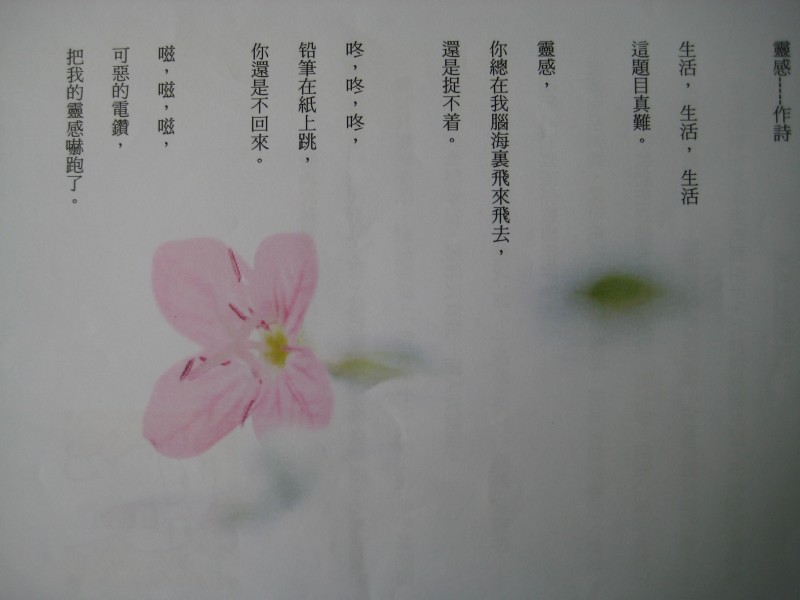 靈感┅┅作詩
生活，生活，生活
這題目真難。
靈感，
你總在我腦海裏飛來飛去，
還是捉不着。
咚，咚，咚，
铅筆在紙上跳，
你還是不回來。
嗞，嗞，嗞，
可惡的電鑽，
把我的靈感嚇跑了。